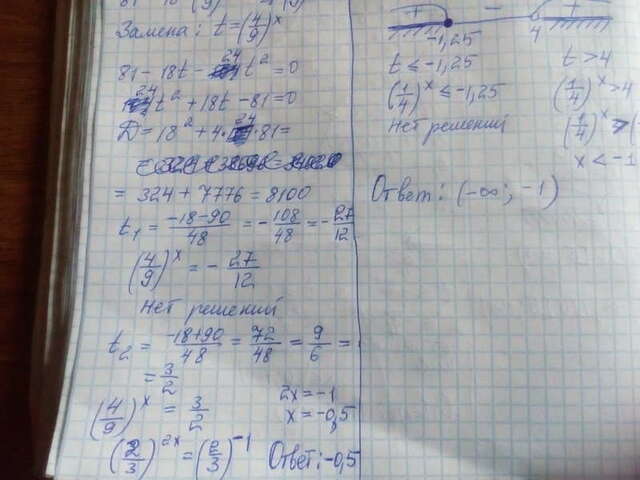 Замена: t=(4/9)^x
81-18t-24t²=0
24t²+18t-81=0
D=18²+4·24·81=
=324+7776=8100
t₁=(-18-90)/48=-108/48=-27/12
(4/9)^x=-27/12
Нет решений
t₂=(-18+90)/48=72/48=9/6=
=3/2
(4/9)^x=3/2
(2/3)^2x=(2/3)^-1
2x=-1
x=-0,5
Ответ:-0,5
+ - +
-1,25 4
t≤-1,25 t>4
(1/4)^x≤-1,25 (1/4)^x>4
Нет решений (1/4)^x>(
x<-1
Ответ: (-∞; -1)